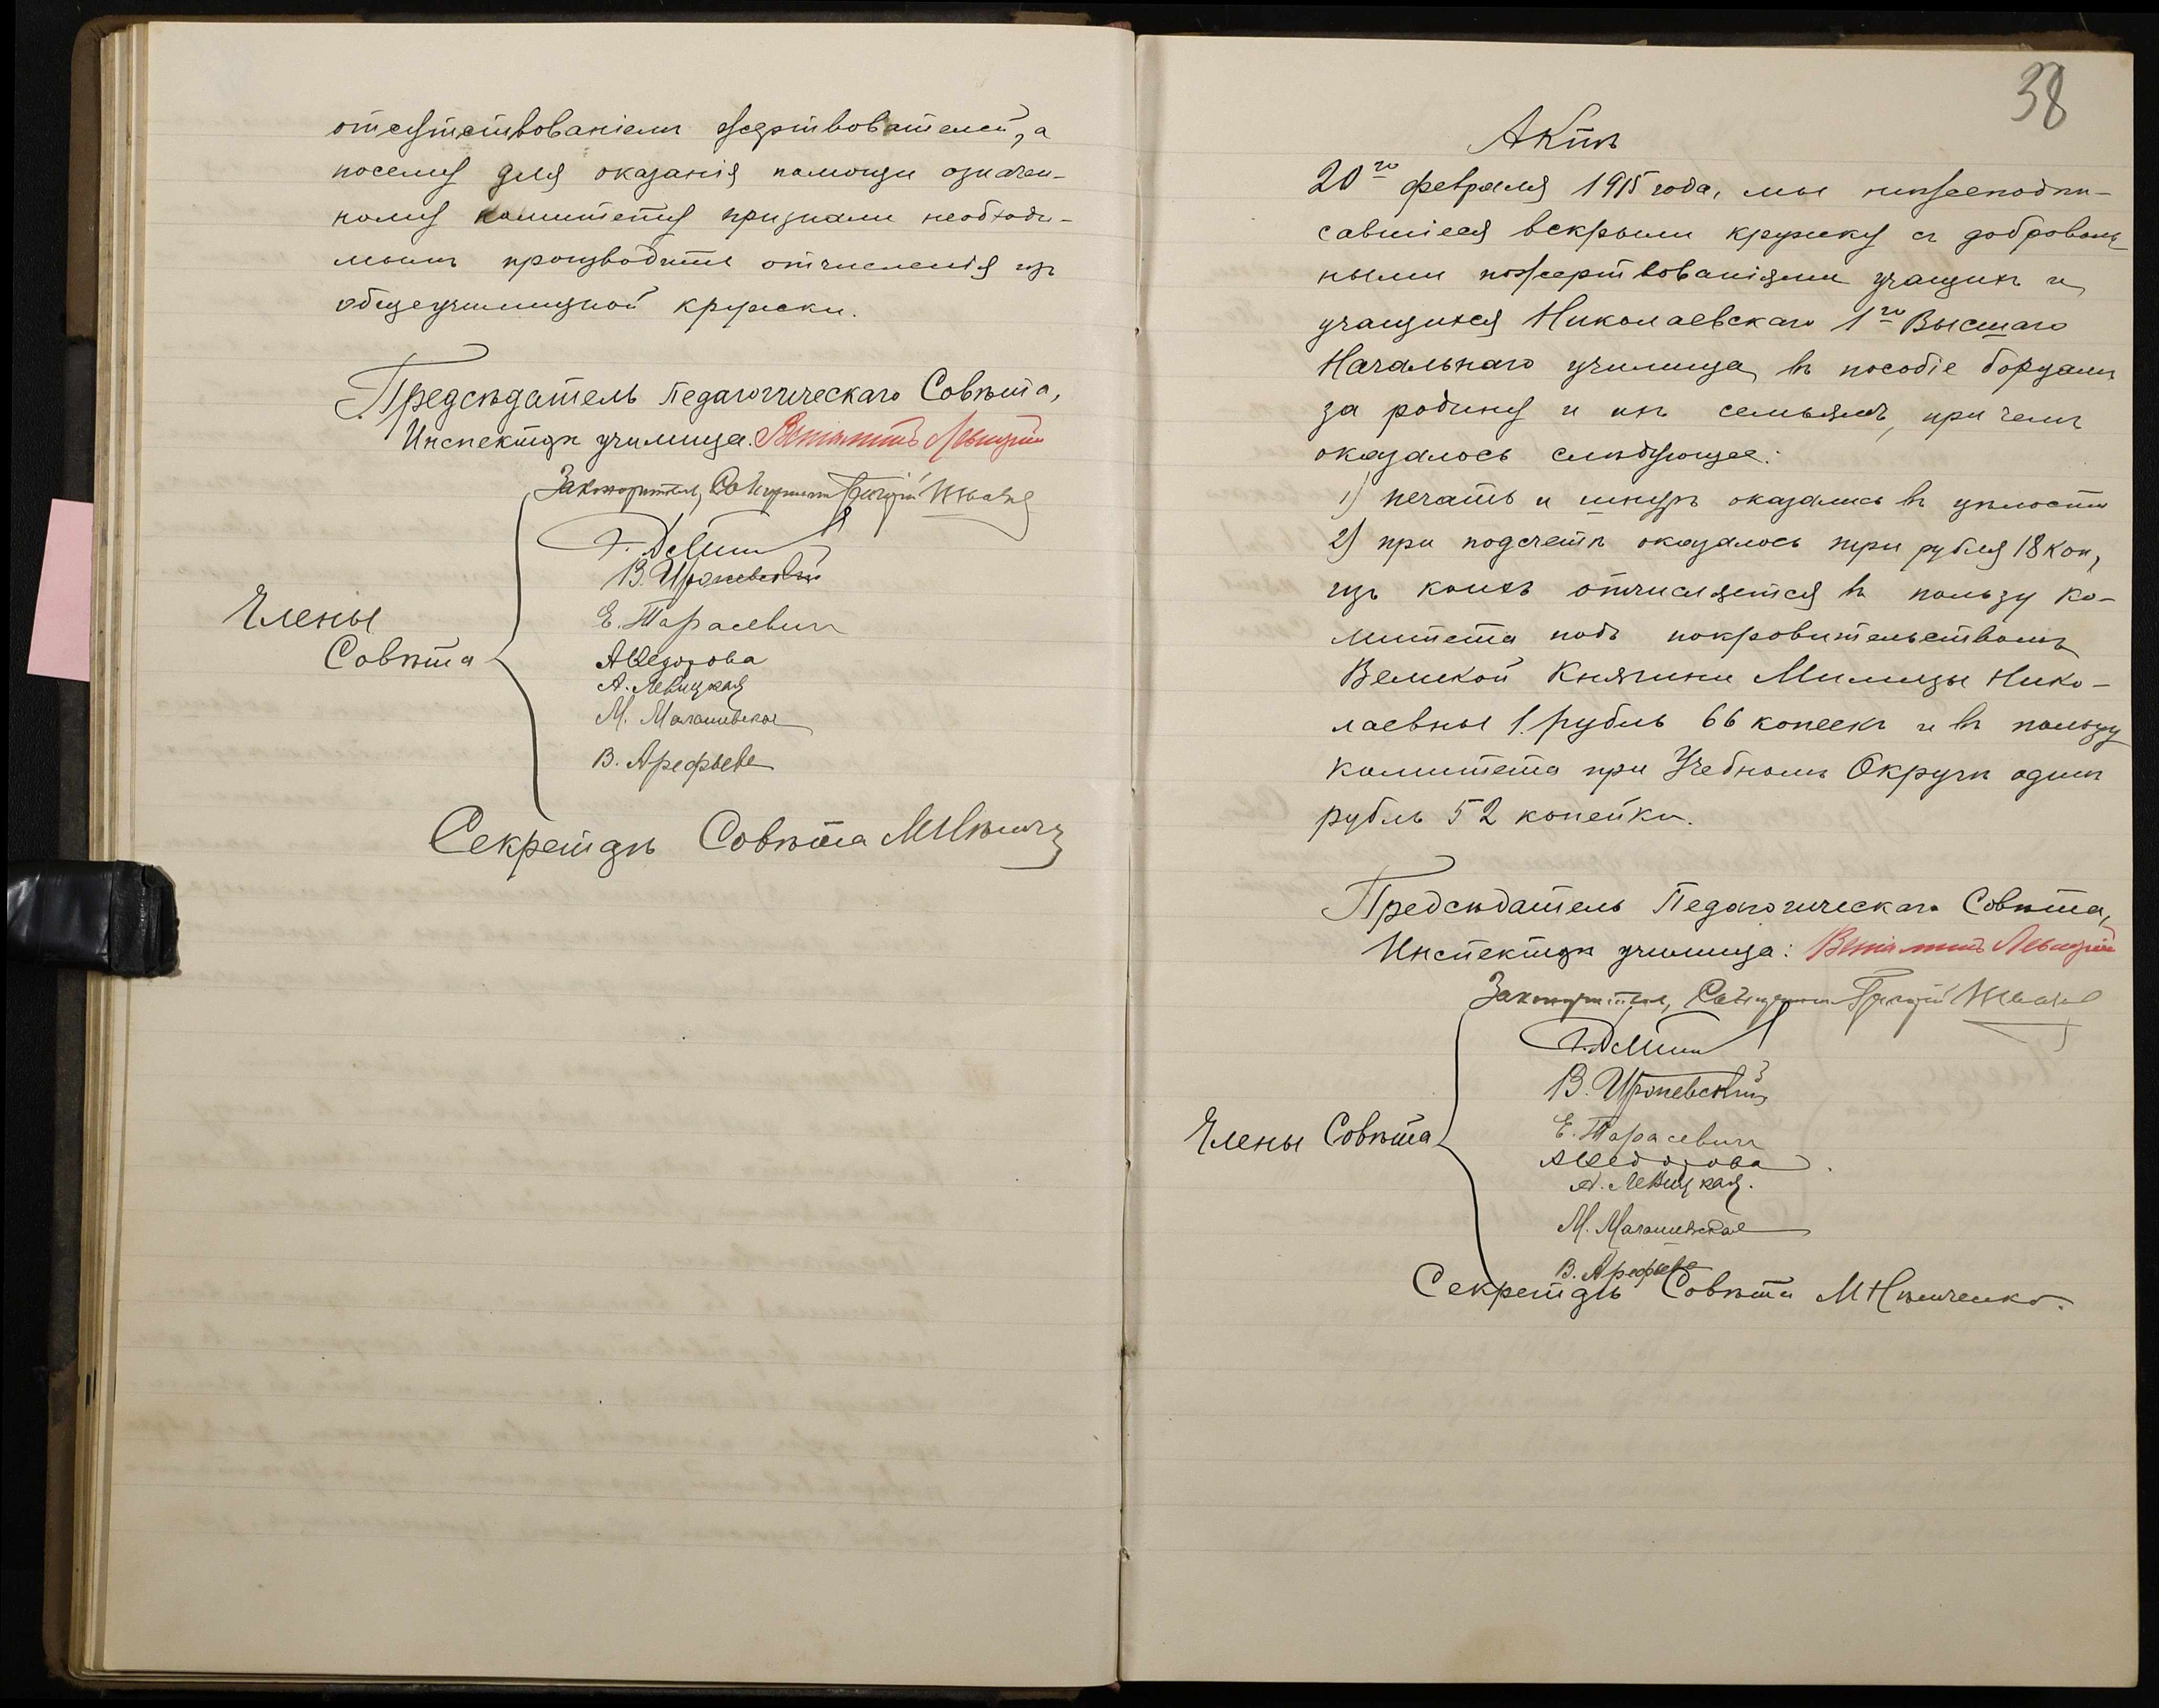 отсутствованіемъ жертвователей, а
посему для оказанія помощи означен-
ному комитету признали необходи-
мымъ производить отчисленія изъ
общеучилищной кружки.
Предсѣдатель Педагогическаго Совѣта,
Инспекторъ училища. Левицкій
Законоучитель, Священникъ Григорій
Члены
Совѣта
Е. Тарасевич
А Федорова
А. Левицкая
М. Малашевская
В. Арефьева
Секретарь Совѣта
38
Актъ
20го февраля 1915 года, мы нижеподпи-
савшіеся вскрыли кружку съ доброволь-
ными пожертвованіями учащихъ и
учащихся Николаевскаго 1го Высшаго
Начальнаго училища, въ пособіе борцамъ
за родину и ихъ семьямъ, при чемъ
оказалось слѣдующее:
1) печать и шнуръ оказались въ цѣлости
2) при подсчетѣ оказалось три рубля 18 коп,
изъ коихъ отчисляется въ пользу Ко-
митета подъ покровительствомъ
Великой Княгини Милицы Нико-
лаевны 1 рубль 66 копеекъ и въ пользу
Комитета при Учебномъ Округѣ одинъ
рубль 52 копейки.
Предсѣдатель Педагогическаго Совѣта,
Инспекторъ училища: Левицкій
Законоучитель, Священникъ Григорій
Члены Совѣта
Е. Тарасевич
А Федорова.
А. Левицкая.
М. Малашевская
В. Арефьева
Секретарь Совѣта М Нѣмченко.